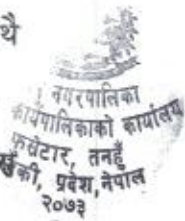 थै
नगरपालिका
कार्यपालिकाको कार्यालय
तनहुँ
प्रदेश, नेपाल
२०७३